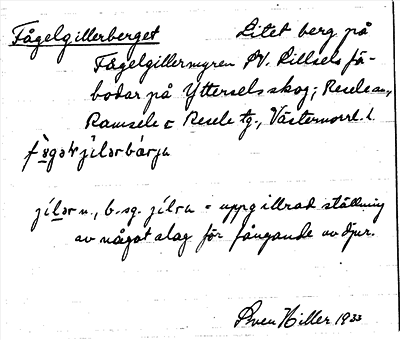 Fågelgillerberget Litet berg på
Fågelgillermyren NV. Lillsels fä-
bodar på Yttersels skog; Resele an.,
Ramsele c Resele tg., Västernorrl. l.
jílər n., b. sg. jílra = uppgillrad ställning
av något slag för fångande av djur.
Sven Hiller 1933